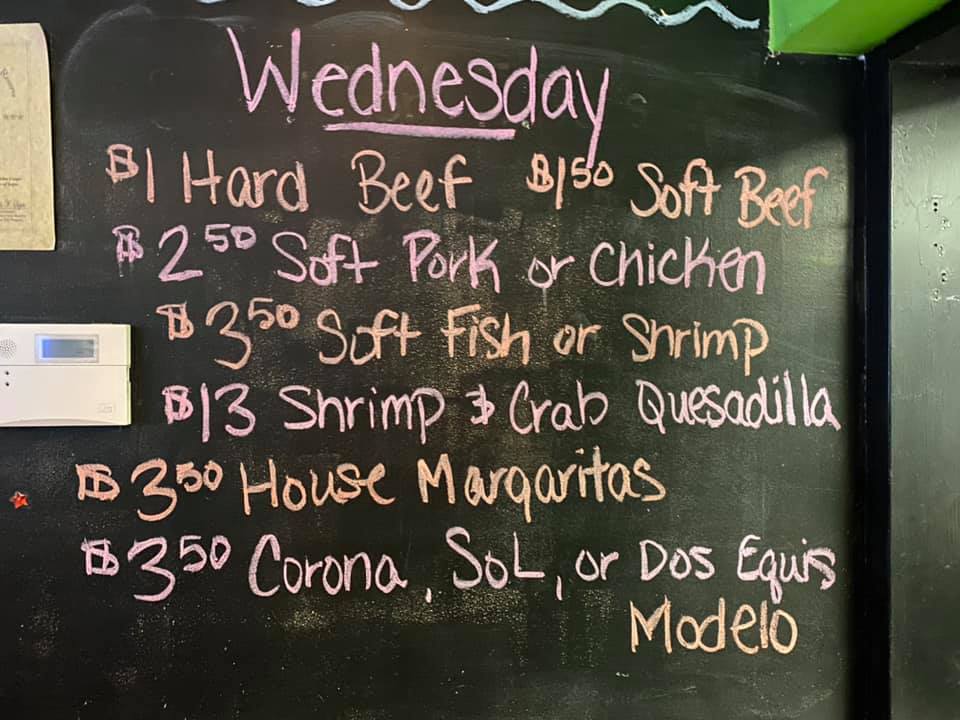 Wednesday
$1 Hard Beef $1.50 Soft Beef
$2.50 Soft Pork or Chicken
$3.50 Soft Fish or Shrimp
$13 Shrimp & Crab Quesadilla
$3.50 House Margaritas
$3.50 Corona, SoL, or Dos Equis
Modelo